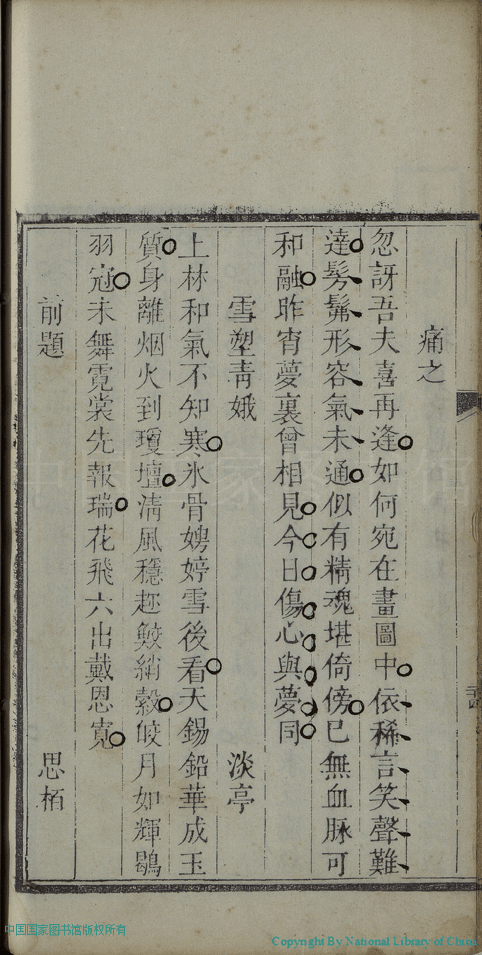 痛之
忽訝吾夫喜再逢如何宛在畫圖中依稀言笑聲難
達髣髴形容氣未通似有精魂堪倚傍已無血脉可
和融昨宵夢裏曾相見今日傷心與夢同
雪塑靑娥 淡亭
上林和氣不知寒氷骨娉婷雪後看天錫鉛華成玉
質身離烟火到瓊壇清風穩趂鮫綃縠皎月如輝鶡
羽冠未舞霓裳先報瑞花飛六出戴恩寬
前題 思栢
中国国家图书馆版权所有
Copyright By National Library of China